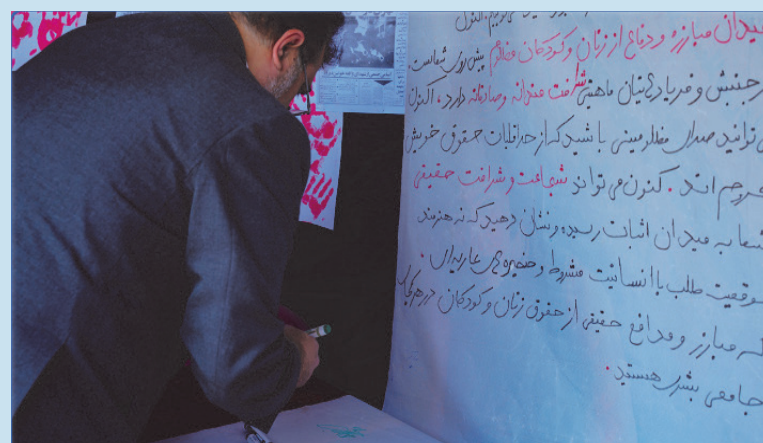 میدان مبارزه و دفاع از زنان و کودکان مظلوم پیش روی شماست.
جنبش و فریادهایتان ماهیتی شرافت‌مندانه و صادقانه دارد، اکنون
می توانید صدای مظلومینی باشید که از حداقلیات حقوقی خویش
محروم اند. کنون می تواند شجاعت و شرافت حقیقی
شما به میدان اثبات رسیده و نشان دهید که نه هنرمند
موقعیت طلب با انسانیت مشروط و حنجره‌های عاریه‌ای.
که مبارز و مدافع حقیقی از حقوق زنان و کودکان در هر کجای
جامعی بشری هستید.